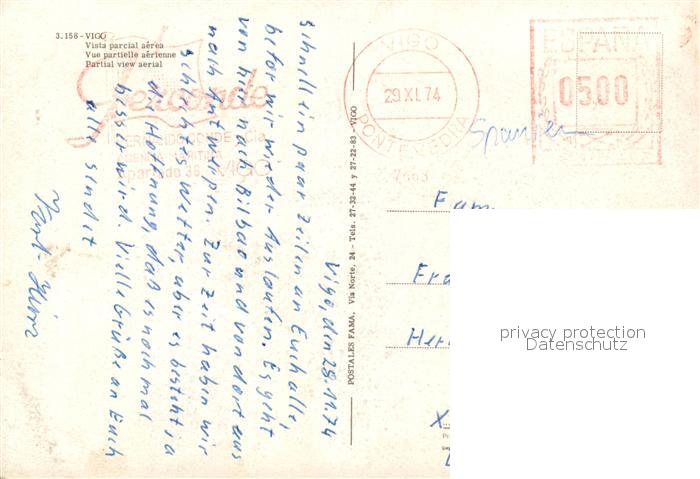 3.158 - VIGO
Vista parcial aérea
Vue partielle aérienne
Partial view aerial
VIGO
29.XI.74
PONTEVEDRA
ESPAÑA
05.00
Spanien
Vigo, den 28.11.74
Schnell ein paar Zeilen an Euch alle,
bevor wir wieder Auslaufen. Es geht
von hier nach Bilbao und von dort aus
nach Antwerpen. Zur Zeit haben wir
schlechtes Wetter, aber es besteht ja
die Hoffnung, daß es noch mal
besser wird. Viele Grüße an Euch
alle sendet
Kurt-Heinz
POSTALES FAMA, Vía Norte, 24 - Tels. 27-32-44 y 27-22-83 - VIGO
Apartado 36 VIGO
Fam
Fra
Her
privacy protection
Datenschutz